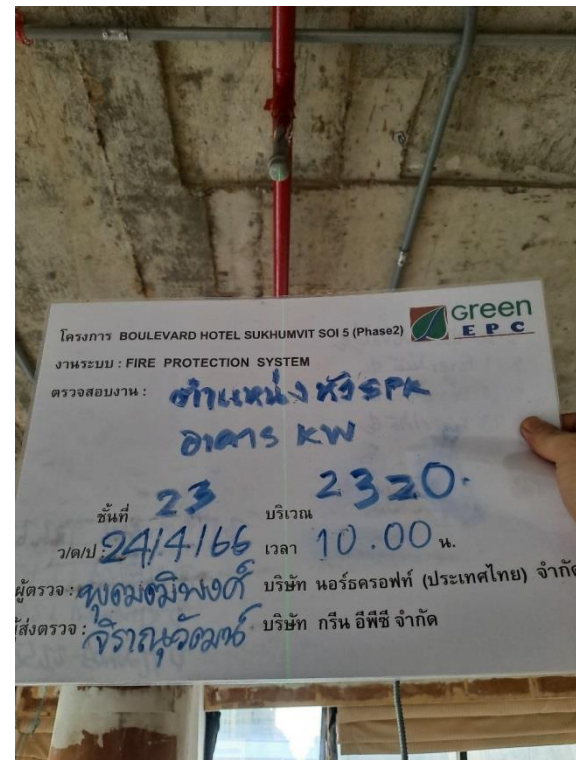 Green
EPC
โครงการ BOULEVARD HOTEL SUKHUMVIT SOI 5 (Phase2)
งานระบบ : FIRE PROTECTION SYSTEM
ตรวจสอบงาน : ตำแหน่งหัวSPK
อาคาร KW
ชั้นที่ 23 บริเวณ 2320.
ว/ด/ป : 24/4/66 เวลา 10.00 น.
ผู้ตรวจ : บริษัท นอร์ธครอฟท์ (ประเทศไทย) จำกัด
ผู้ส่งตรวจ : จิราณุวัฒน์ บริษัท กรีน อีพีซี จำกัด